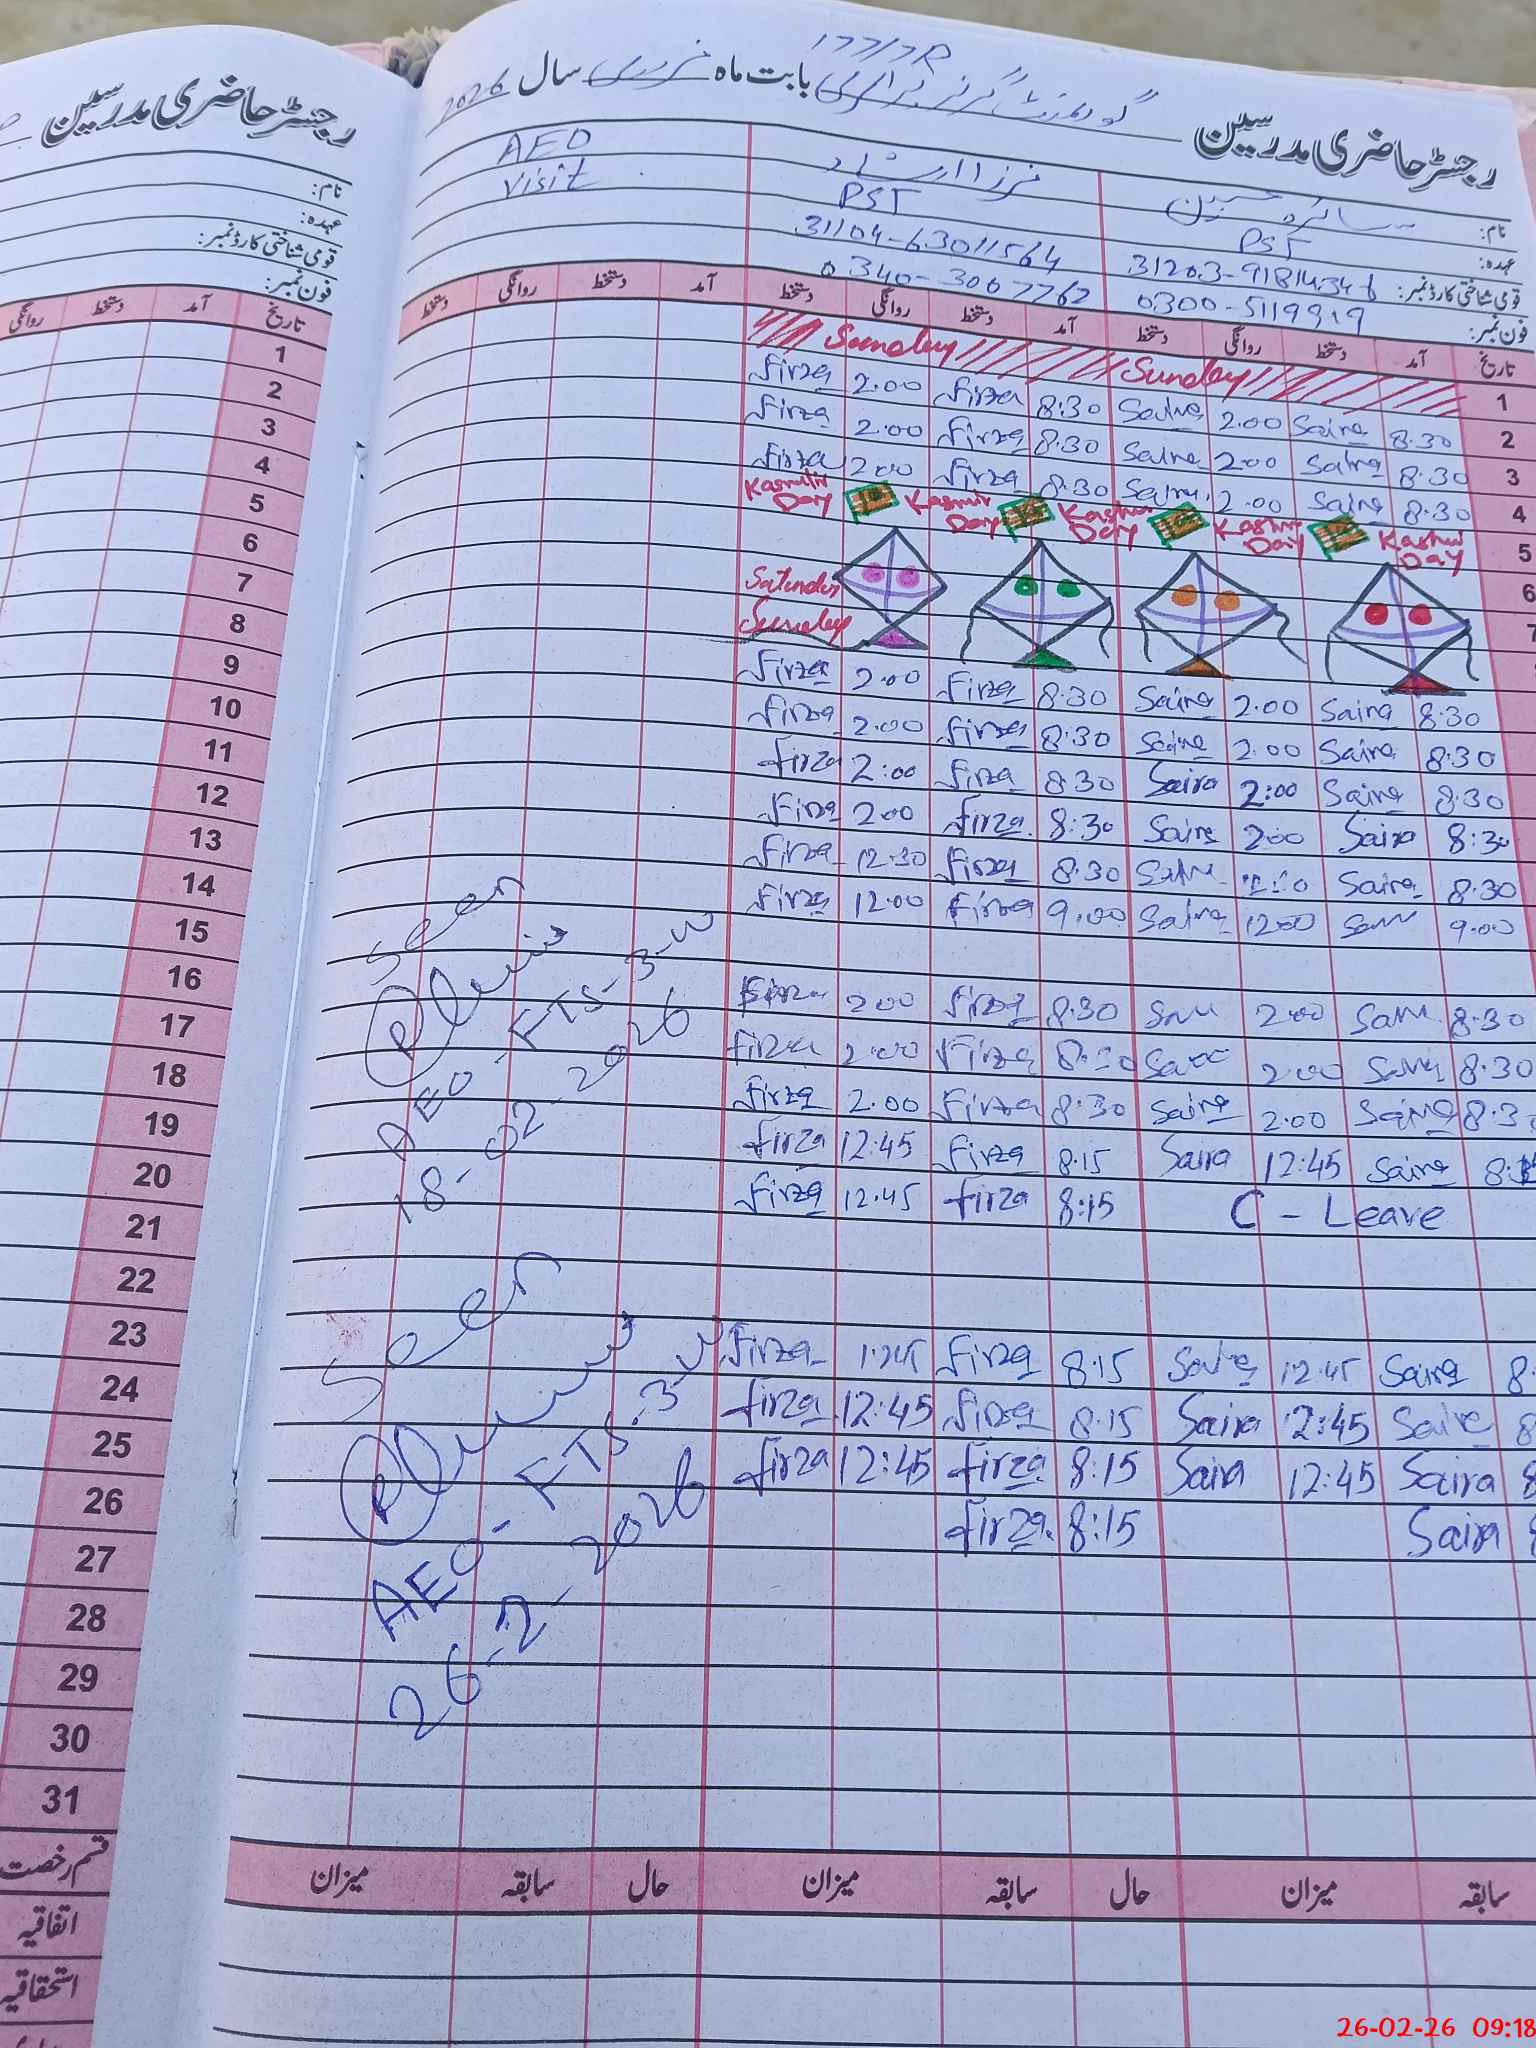 رجسٹر حاضری مدرسین
نام:
عہدہ:
قومی شناختی کارڈ نمبر:
فون نمبر:
تاریخ آمد دستخط روانگی
1
2
3
4
5
6
7
8
9
10
11
12
13
14
15
16
17
18
19
20
21
22
23
24
25
26
27
28
29
30
31
قسم رخصت
اتفاقیہ
استحقاقیہ
رجسٹر حاضری مدرسین گورنمنٹ گرلز پرائمری بابت ماہ فروری سال 2026
177/7R
نام: سائرہ حسین
عہدہ: PST
قومی شناختی کارڈ نمبر:
فون نمبر: 0300-5119919
فرزا ارشاد
PST
31104-63011564
0340-3007762
AEO
Visit
تاریخ آمد دستخط روانگی دستخط آمد دستخط روانگی دستخط آمد دستخط روانگی دستخط
Sunday Sunday 1
Firza 2.00 Firza 8:30 Saira 2.00 Saira 8.30 2
Firza 2.00 Firza 8.30 Saira 2.00 Saira 8.30 3
Firza 2.00 Firza 8.30 Saira 2.00 Saira 8.30 4
Kashmir Day Kashmir Day Kashmir Day Kashmir Day Kashmir Day 5
6
Saturday 7
Sunday
Firza 2.00 Firza 8.30 Saira 2.00 Saira 8.30
Firza 2.00 Firza 8.30 Saira 2.00 Saira 8.30
Firza 2:00 Firza 8.30 Saira 2:00 Saira 8.30
Firza 2.00 Firza 8:30 Saira 2.00 Saira 8:30
Firza 12.30 Firza 8.30 Saira Saira 8.30
Firza 12.00 Firza 9.00 Saira 12.00 Saira 9.00
Firza 2.00 Firza 8.30 Saira 2.00 Saira 8.30
Firza 2.00 Firza 8.30 Saira 2.00 Saira 8.30
Firza 2.00 Firza 8.30 Saira 2.00 Saira 8.3
Firza 12:45 Firza 8.15 Saira 12:45 Saira
Firza 12.45 Firza 8:15 C - Leave
Firza Firza 8.15 Saira 12.45 Saira 8
Firza 12:45 Firza 8.15 Saira 12:45 Saira 8
Firza 12:45 Firza 8:15 Saira 12:45 Saira 8
Firza 8:15 Saira 8
Seen
AEO-FTS-3-W
18-02-2026
Seen
AEO-FTS-3-W
26-2-2026
سابقہ میزان حال سابقہ میزان حال سابقہ میزان
26-02-26 09:18